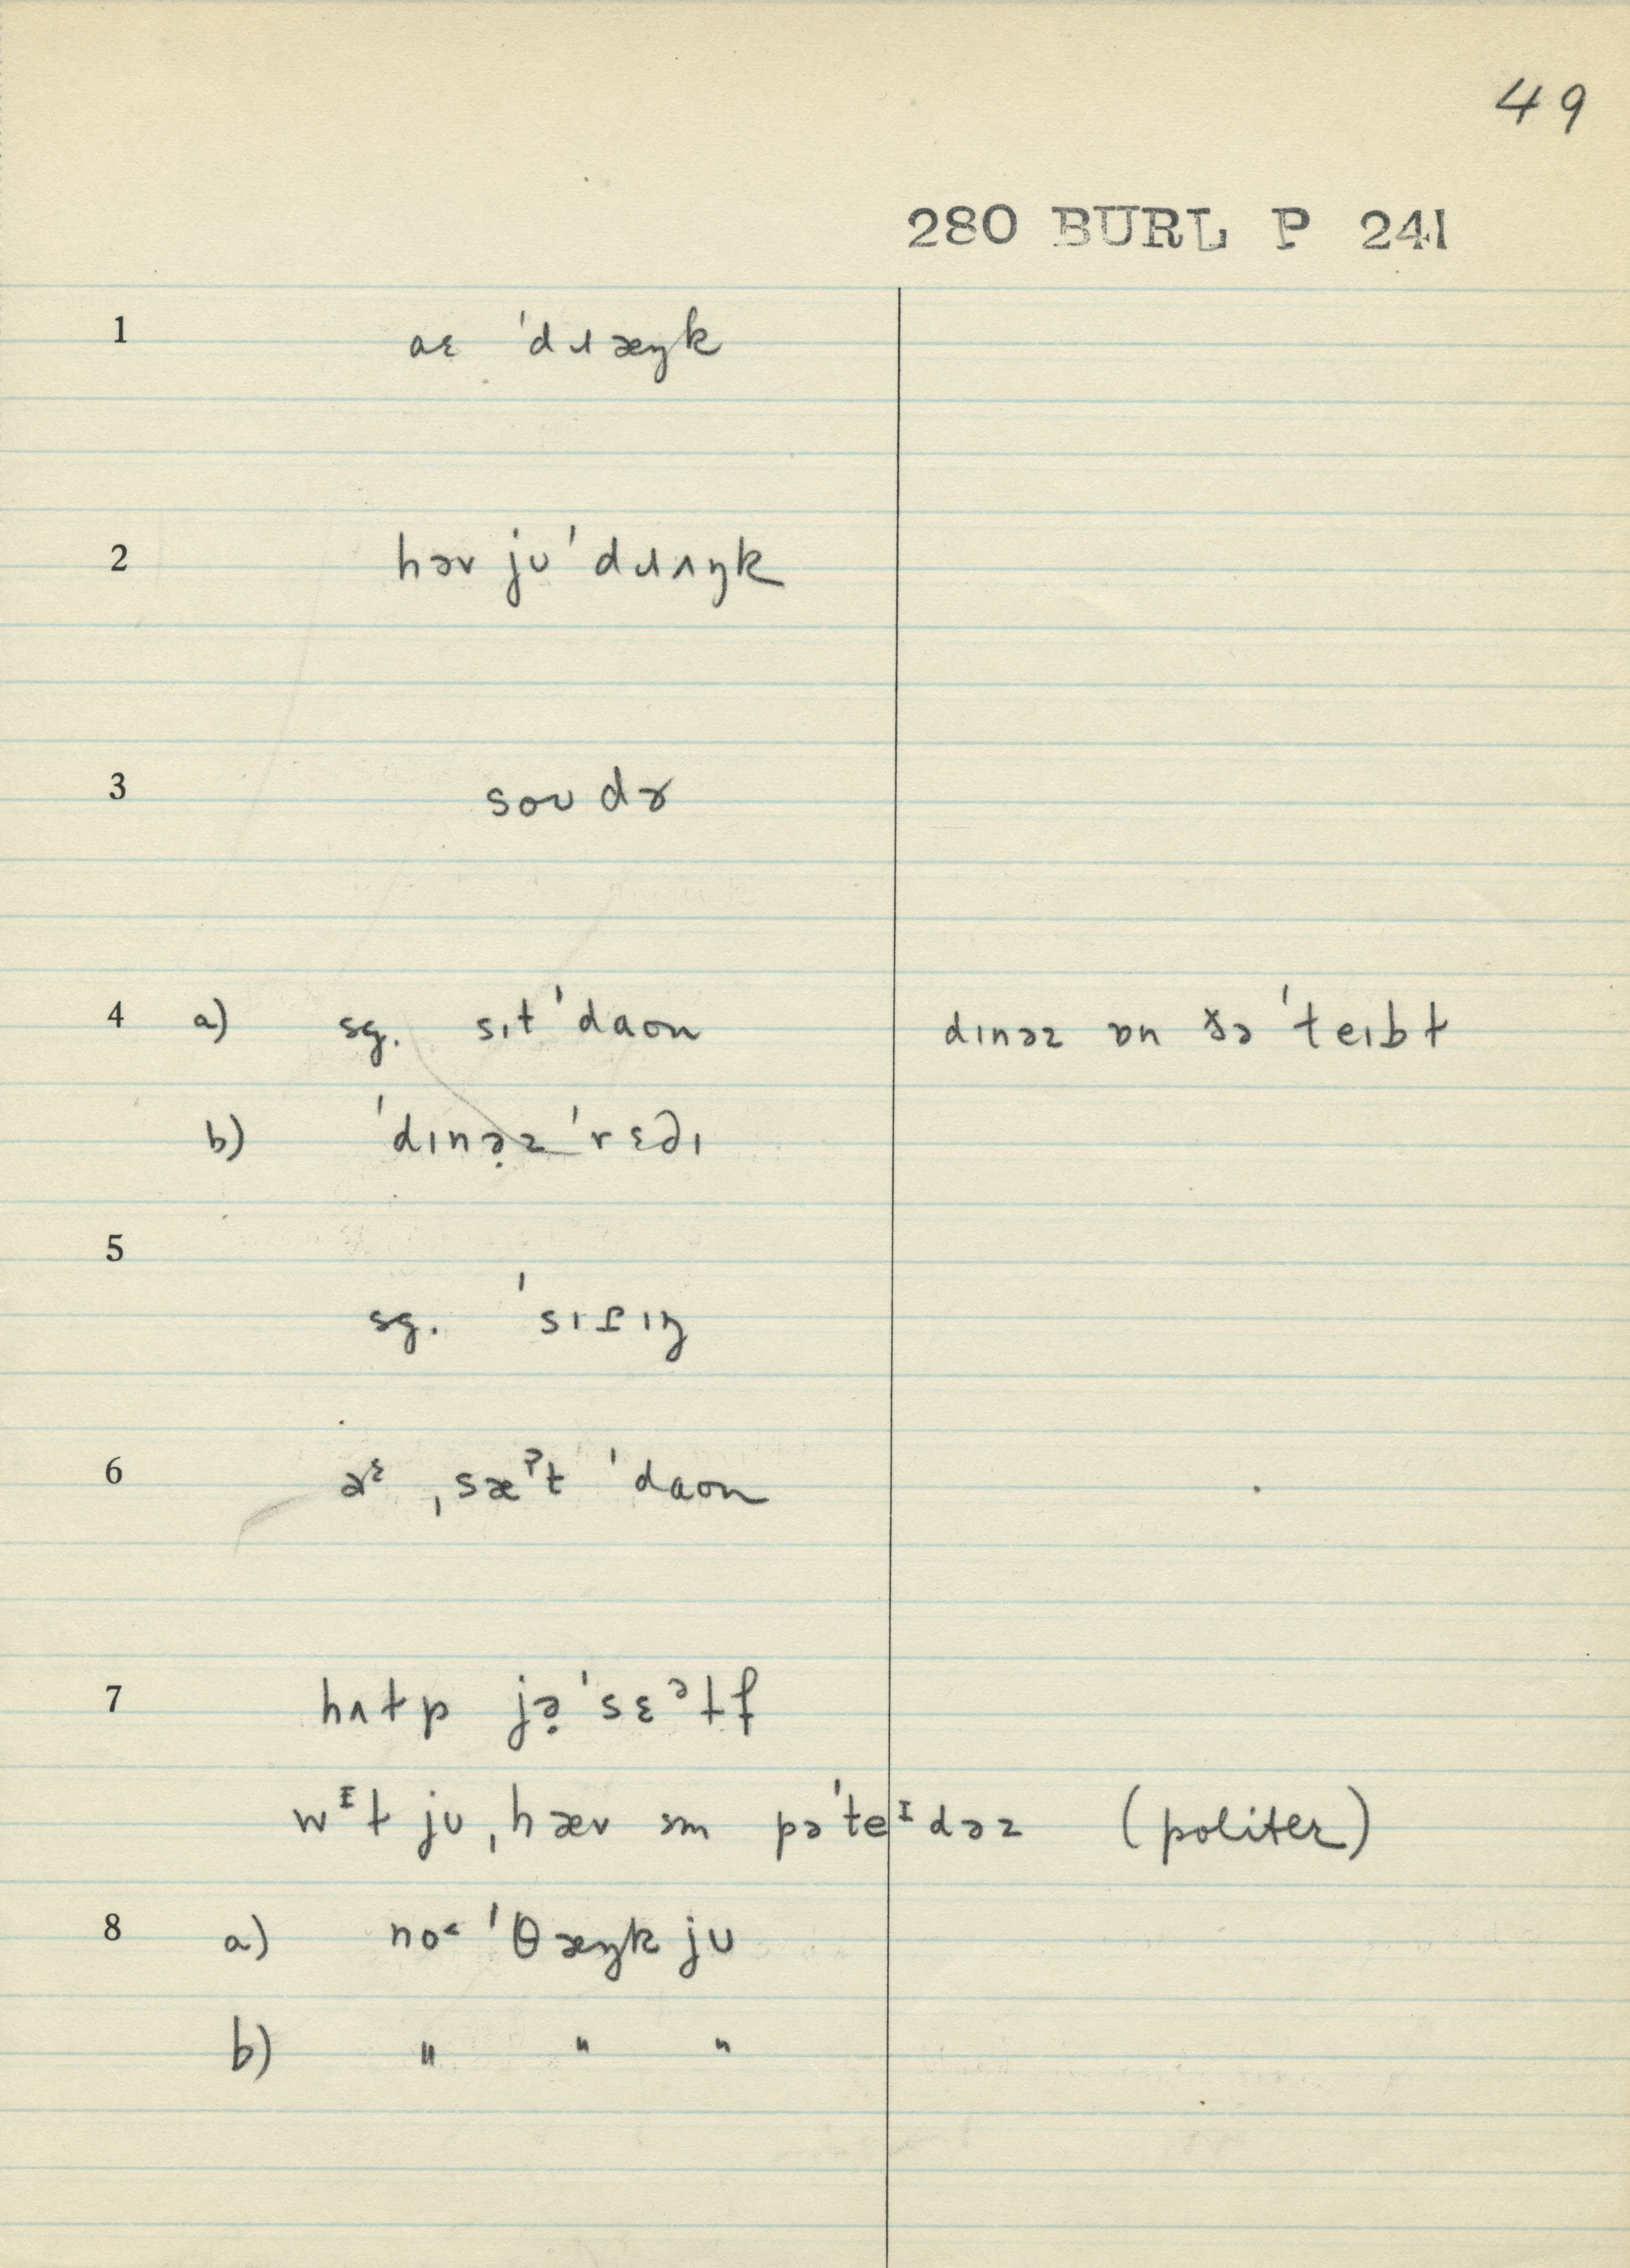 49
280 BURL P 241
1 aɛ ˈdɹæŋk
2 həv jʊ ˈdɹʌŋk
3 soʊ dɚ
4 a) sg. sɪt ˈdaʊn dɪnəz ɒn ðə ˈteɪbɫ
b) ˈdɪnə̣z ˈrɛd̬ɪ
5
sg. ˈsɪt̬ɪŋ
6 aᵋ ˌsæˀt ˈdaʊn
7 hʌɫp jə̣ ˈsɛᵊɫf
wᴵɫ jʊ ˌhæv sm pəˈteᴵdəz (politer)
8 a) no˂ ˈθæŋk jʊ
b) " " "